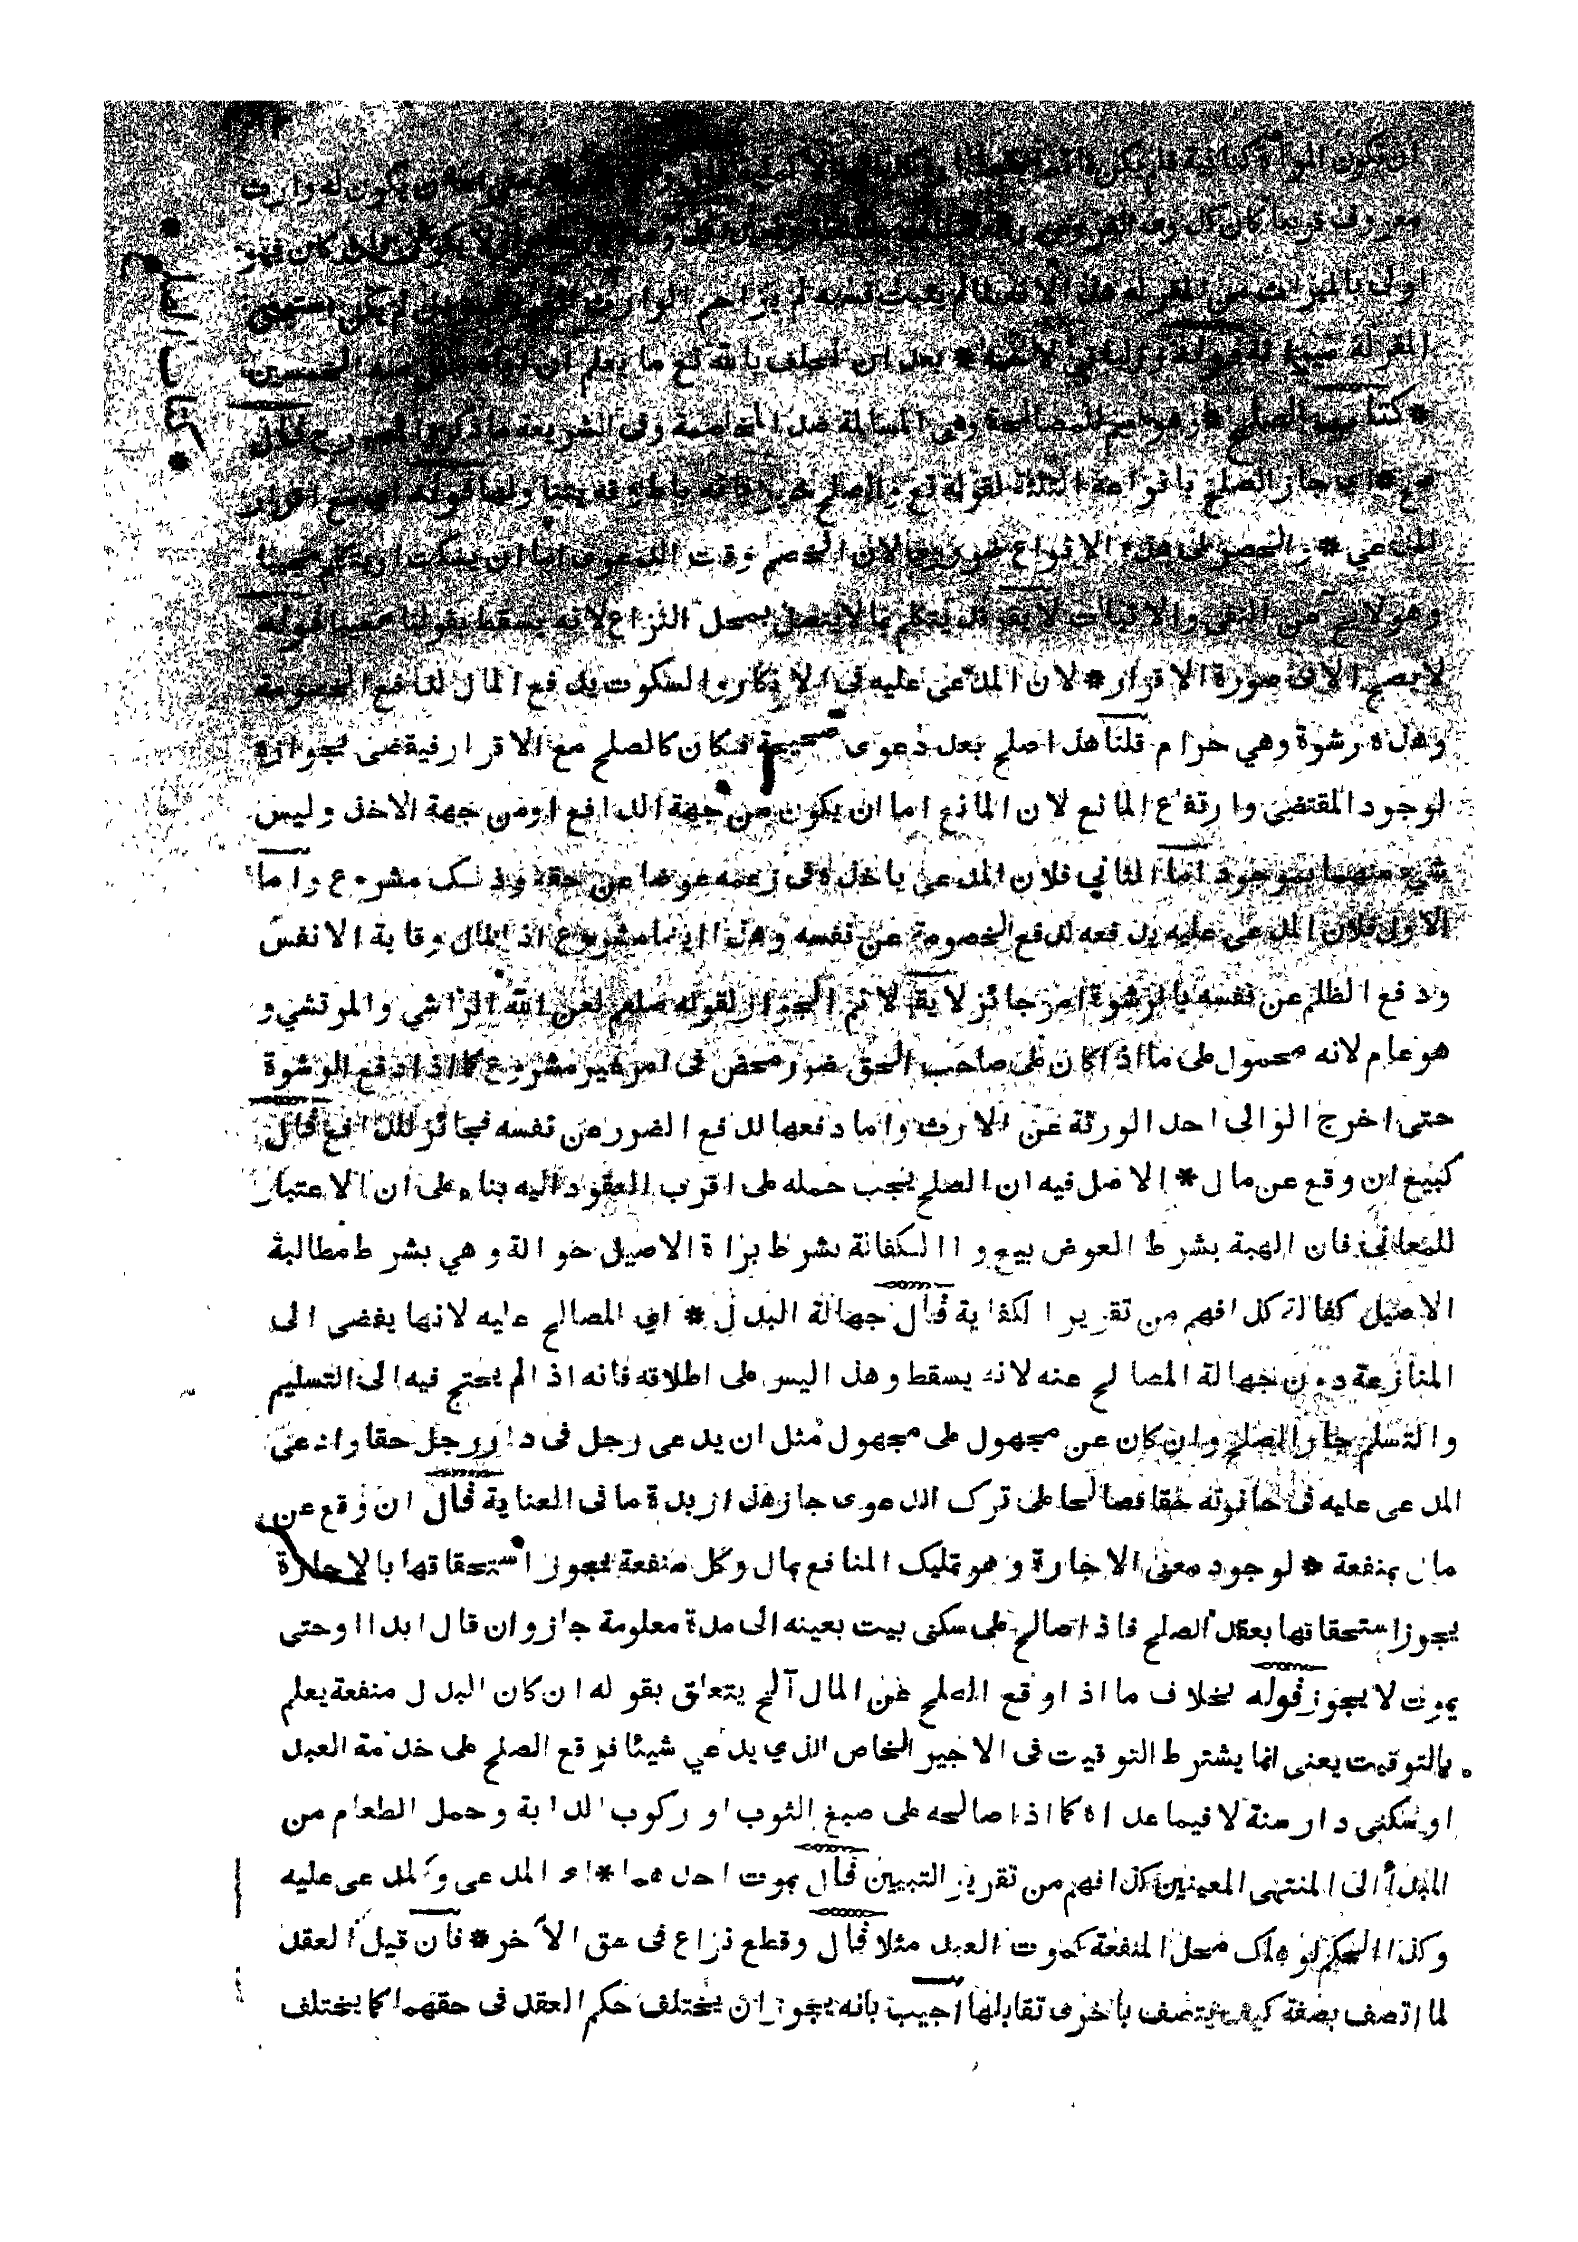 ان يكون المرأة كتابية فان يكون له وارث
معروف قريبا كان كل وى القروض كان فهو
اولى بالميراث من المقر له هذا لانه لما لم يثبت نسبه لم يزاحم الوارث لم يكن استحق
المقر له شيئا بعد ان تحلف بالله تع ما يعلم ان الخمسين
* كتاب الصلح * وهو اسم للمصالحة وهى المسالمة ضد المخاصمة وفى الشريعة ما ذكره المص رح قال
جاز الصلح بانواعه الثلثة لقوله تع والصلح خير فانه باطلاقه يتنا ولها قوله
المدعي * والحصر فى هذه الانواع ضرورى لان الخصم وقت الدعوى اما ان يسكت او يتكلم مجيبا
وهو لايخ من النفى والاثبات لا يقر قد يتكلم بما لا يتصل بمحل النزاع لانه يسقط بقولنا مجيبا قوله
لا يصح الا فى صورة الاقرار * لان المدعى عليه فى الانكار والسكوت يدفع المال لدفع الخصومة
وهذه رشوة وهي حرام قلنا هذا صلح بعد دعوى صحيحة فكان كالصلح مع الاقرار فيقضى بجوازه
لوجود المقتضي وارتفاع المانع لان المانع اما ان يكون من جهة الدافع او من جهة الاخذ وليس
شيء منهما بموجود اما الثاني فلان المدعى ياخذه فى زعمه عوضا عن حقه وذلك مشروع واما
الاول فلان المدعى عليه يدفعه لدفع الخصومة عن نفسه وهذا ايضا مشروع اذ المال وقاية الانفس
ودفع الظلم عن نفسه بالرشوة امر جائز لا يقر لا نم الجواز لقوله صلعم لعن الله الراشي والمرتشي و
هو عام لانه محمول على ما اذا كان على صاحب الحق ضرر محض فى امر غير مشروع كما اذا دفع الرشوة
حتى اخرج الوالى احد الورثة عن الارث واما دفعها لدفع الضرر عن نفسه فجائز للدافع قال
كبيع ان وقع عن مال * الاصل فيه ان الصلح يجب حمله على اقرب العقود اليه بناء على ان الاعتبار
للمعانى فان الهبة بشرط العوض بيع و االكفالة بشرط براءة الاصيل حوالة وهي بشرط مطالبة
الاصيل كفالة كذا فهم من تقرير الكفاية قال جهالة البدل * اي المصالح عليه لانها يفضى الى
المنازعة دون جهالة المصالح عنه لانه يسقط وهذا ليس على اطلاقه فانه اذا لم يحتج فيه الى التسليم
والتسلم جاز الصلح وان كان عن مجهول على مجهول مثل ان يدعى رجل فى دار رجل حقا وادعى
المدعى عليه فى حانوته حقا فصالحا على ترك الدعوى جاز هذا زبدة ما فى العناية قال ان وقع عن
مال بمنفعة * لوجود معنى الاجارة وهو تمليك المنافع بمال وكل منفعة يجوز استحقاقها بالاجارة
يجوز استحقاقها بعقد الصلح فاذا صالح على سكنى بيت بعينه الى مدة معلومة جاز وان قال ابدا او حتى
يموت لا يجوز قوله بخلاف ما اذا وقع الصلح عن المال آلخ يتعلق بقوله ان كان البدل منفعة يعلم
بالتوقيت يعنى انما يشترط التوقيت فى الاجير الخاص الذي يدعي شيئا فوقع الصلح على خدمة العبد
او سكنى دار سنة لا فيما عداه كما اذا صالحه على صبغ الثوب او ركوب الدابة وحمل الطعام من
المبدأ الى المنتهى المعينين كذا فهم من تقرير التبيين قال بموت احدهما * اى المدعى والمدعى عليه
وكذا الحكم لو هلك محل المنفعة كموت العبد مثلا قال وقطع نزاع فى حق الآخر * فان قيل العقد
لما اتصف بصفة كيف يتصف باخرى تقابلها اجيب بانه يجوز ان يختلف حكم العقد فى حقهما كما يختلف
* كتاب الصلح *